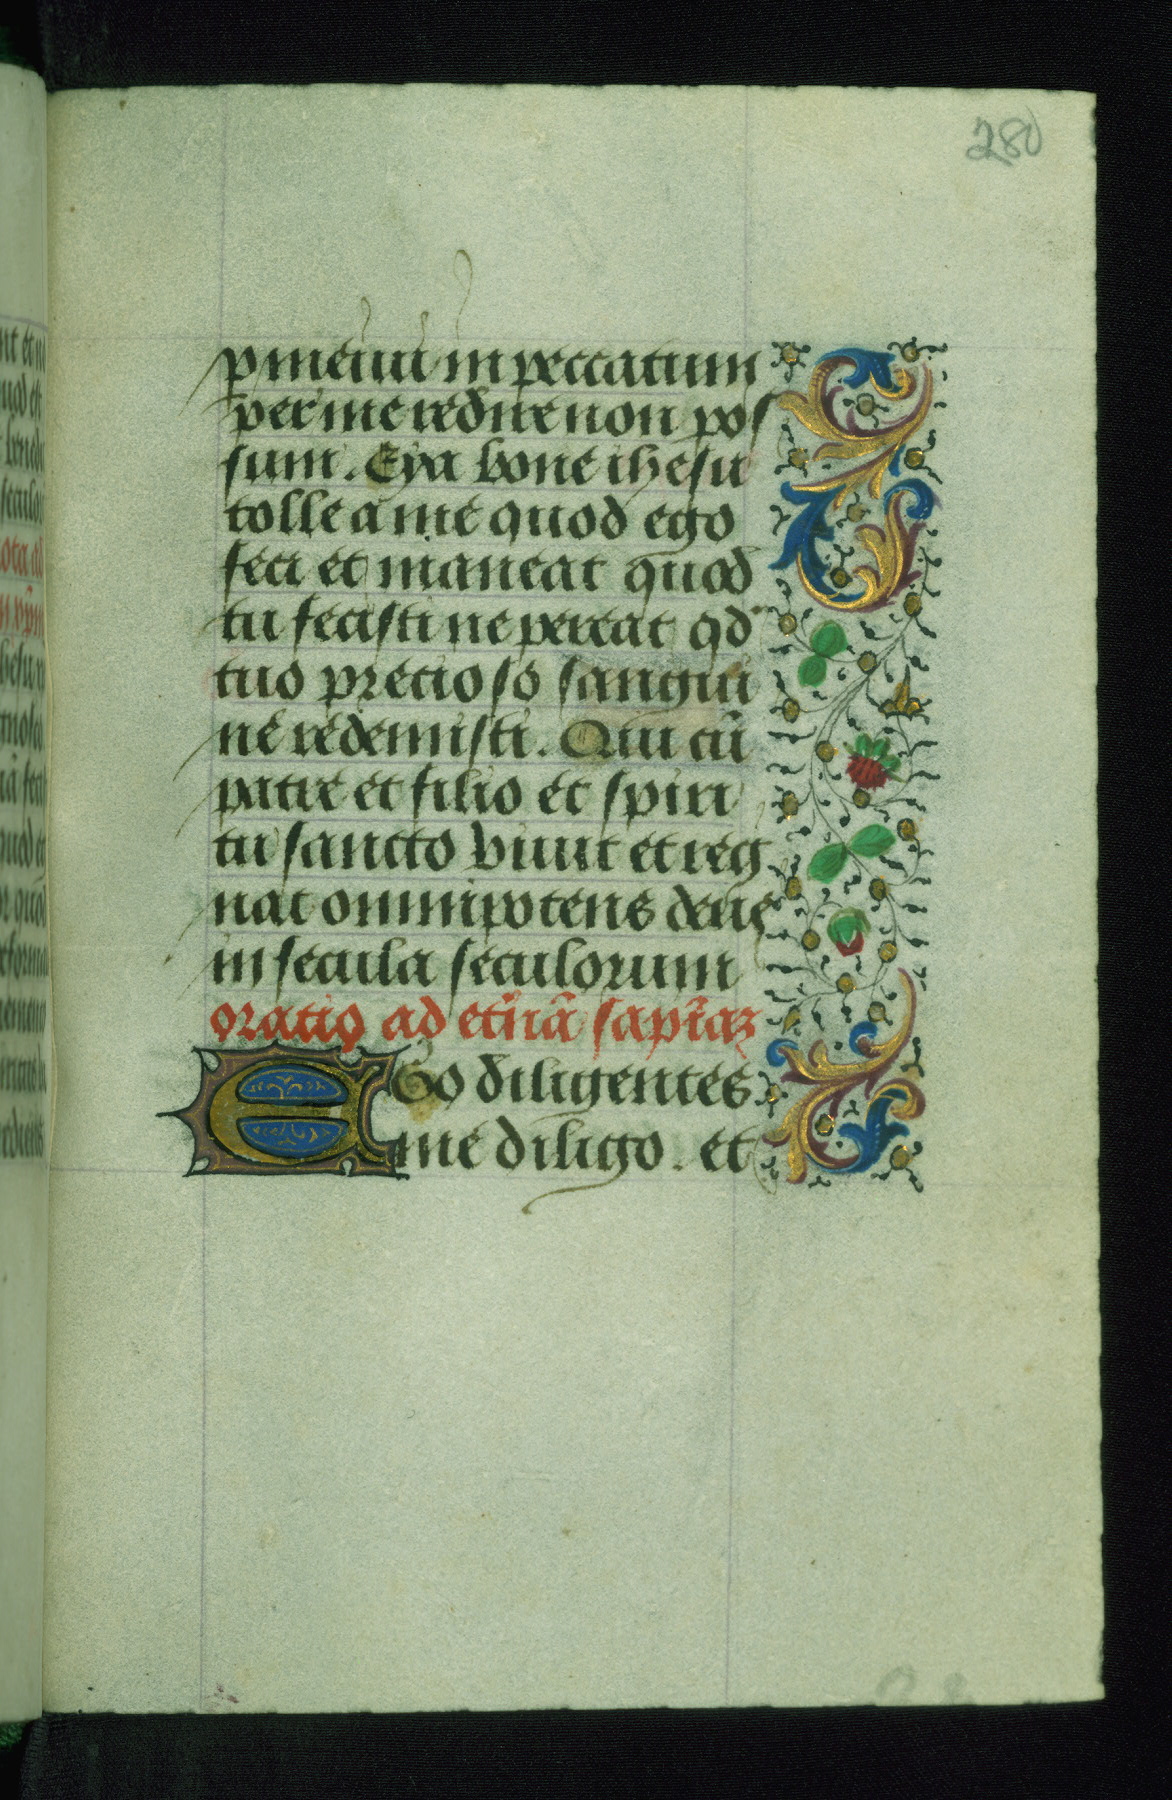 280
p me iui in peccatum
per me redire non pos
sum. Eya bone ihesu
tolle a me quod ego
feci et maneat quod
tu fecisti ne pereat qd
tuo precioso sangui
ne redemisti. Qui cū
patre et filio et spiri
tu sancto viuit et reg
nat omnipotens deus
in secula seculorum
oratio ad et̄nā sapīaz
Ego diligentes
me diligo. et